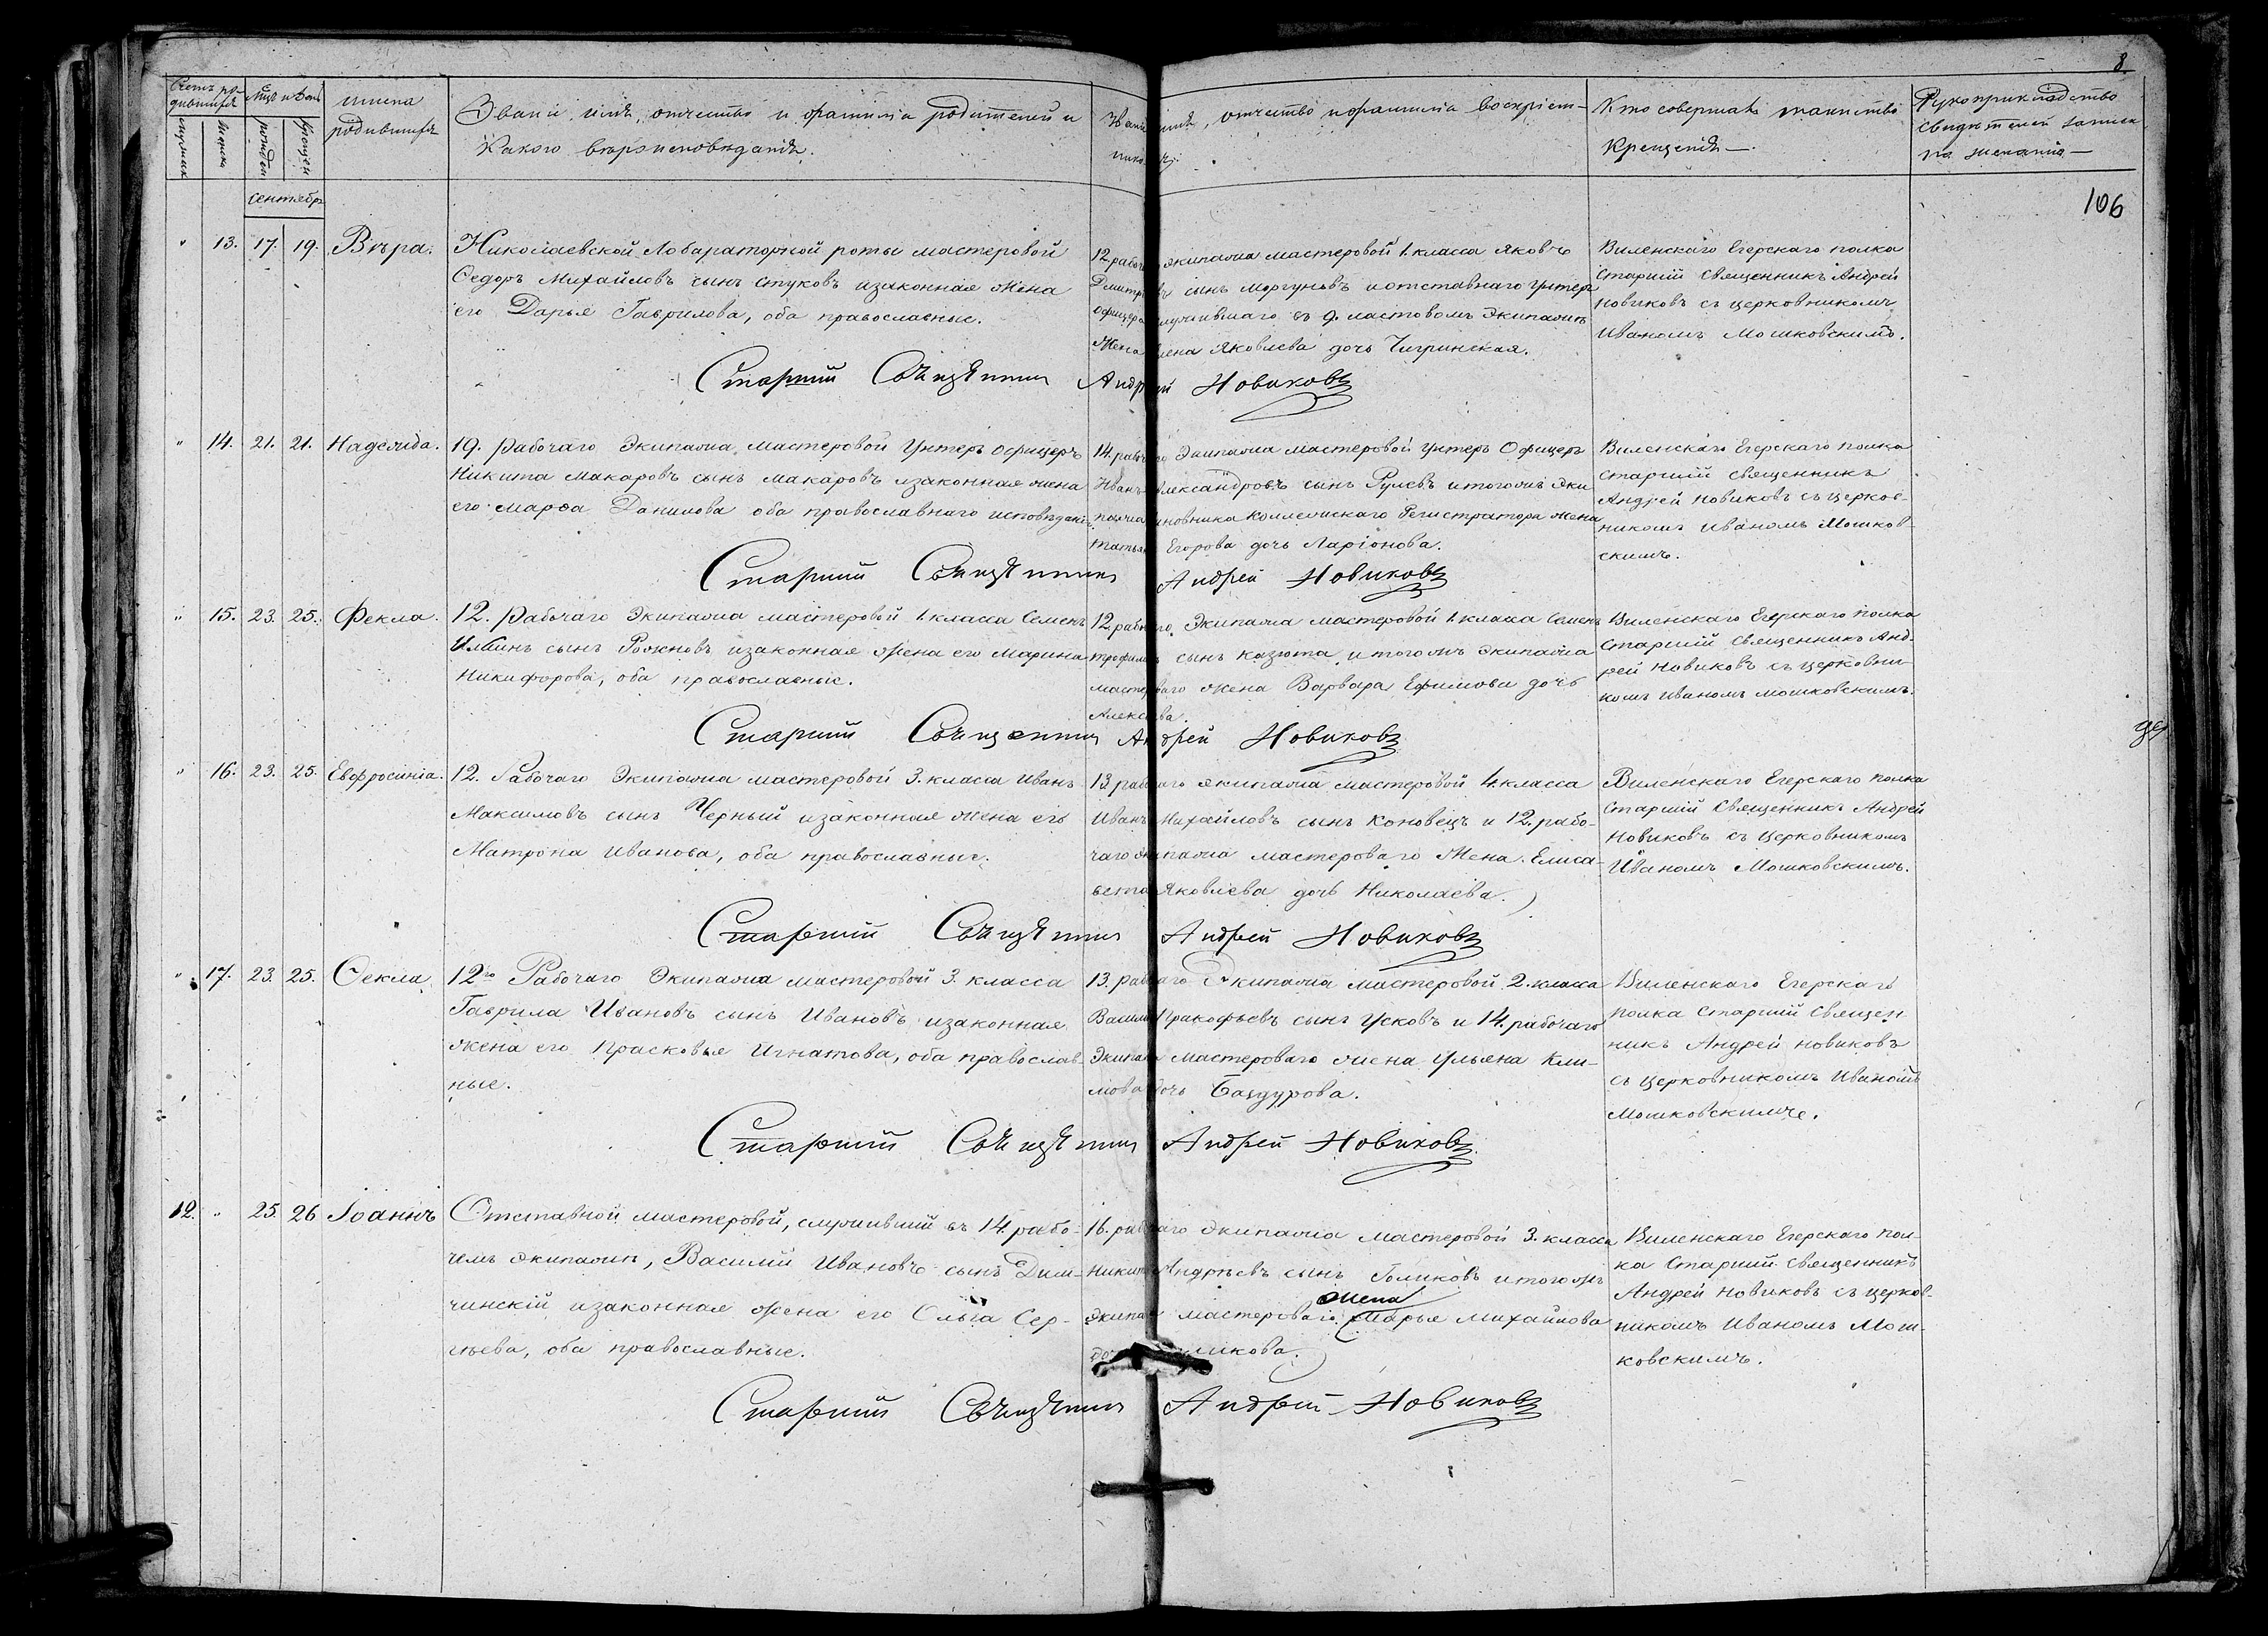 8.
106
Счетъ ро-
дившихся
Мѣсяцъ и день
Имена
родившихся
Званіе, имя, отчество и фамилія родителей и
Какого вѣроисповѣданія.
Званіе имя, отчество и фамилія воспріем-
никовъ
Кто совершалъ таинство
Крещенія —.
Рукоприкладство
свидѣтелей записи
по желанію —
сентябрь
" 13. 17. 19. Вѣра.
Николаевской Лобараторной роты мастеровой
Ѳедоръ Михайловъ сынъ Стуковъ и законная жена
его Дарья Гаврилова, оба православные.
12 рабочаго экипажа мастеровой 1. класса Яковъ
Дмитріевъ сынъ Моргуновъ и отставнаго унтеръ
офицера служившаго въ 9. ластовомъ экипажѣ
жена Яковлева дочь Чигринская.
Виленскаго Егерскаго полка
Старшій Священникъ Андрей
Новиковъ съ церковникомъ
Иваномъ Мошковскимъ.
Старшій Священникъ Андрей Новиковъ
" 14. 21. 21. Надежда.
19. Рабочаго Экипажа, Мастеровой Унтеръ офицеръ
Никита Макаровъ сынъ Макаровъ и законная жена
его Марѳа Данилова оба православнаго исповѣданія.
14. рабочаго Экипажа мастеровой унтеръ Офицеръ
Иванъ Александровъ сынъ Рулевъ и того же Эки
пажа чиновника Коллежскаго Регистратора жена
Татьяна Егорова дочь Ларіонова.
Виленскаго Егерскаго полка
старшій священникъ
Андрей Новиковъ съ церков-
никомъ Иваномъ Мошков-
скимъ.
Старшій Священникъ Андрей Новиковъ
" 15. 23. 25. Фекла.
12. Рабочаго Экипажа мастеровой 1. класса Семенъ
Ильинъ сынъ Рожновъ и законная жена его Марина
Никифорова, оба православные.
12. рабочаго Экипажа мастеровой 1. класса Семенъ
Трофимовъ сынъ Казюта и того жъ экипажа
мастероваго жена Варвара Ефимова дочь
Алексѣева.
Виленскаго Егерскаго полка
Старшій Священникъ Анд-
рей Новиковъ съ церковни-
комъ Иваномъ Мошковскимъ.
Старшій Священникъ Андрей Новиковъ
" 16. 23. 25. Евфросинія.
12. Рабочаго Экипажа мастеровой 3. класса Иванъ
Максимовъ сынъ Черный и законная жена его
Матрона Иванова, оба православные.
13 рабочаго экипажа мастеровой 4. класса
Иванъ Михайловъ сынъ Коновецъ и 12. рабо-
чаго экипажа мастероваго жена Елиса-
вета Яковлева дочь Николаева.
Виленскаго Егерскаго полка
Старшій Священникъ Андрей
Новиковъ съ Церковникомъ
Иваномъ Мошковскимъ.
Старшій Священникъ Андрей Новиковъ
" 17. 23. 25. Ѳекла.
12го Рабочаго Экипажа мастеровой 3. класса
Гаврила Ивановъ сынъ Ивановъ и законная
жена его Прасковья Игнатова, оба православ-
ные.
13. рабочаго Экипажа мастеровой 2. класса
Василій Прокофьевъ сынъ Усковъ и 14. рабочаго
Экипажа мастероваго жена Ульяна Кли-
мова дочь Баздурова.
Виленскаго Егерскаго
полка Старшій Священ-
никъ Андрей Новиковъ
съ Церковникомъ Иваномъ
Мошковскимъ.
Старшій Священникъ Андрей Новиковъ
12. " 25. 26 Іоаннъ
Отставной мастеровой, служившій въ 14. рабо-
чемъ экипажѣ, Василій Ивановъ сынъ Дим-
чинскій и законная жена его Ольга Сер-
гѣева, оба православные.
16. рабочаго экипажа мастеровой 3. класса
Никита Андрѣевъ сынъ Голиковъ и того жъ
жена
экипажа мастероваго Марья Михайлова
Виленскаго Егерскаго пол-
ка Старшій Священникъ
Андрей Новиковъ съ церков-
никомъ Иваномъ Мош-
ковскимъ.
Старшій Священникъ Андрей Новиковъ